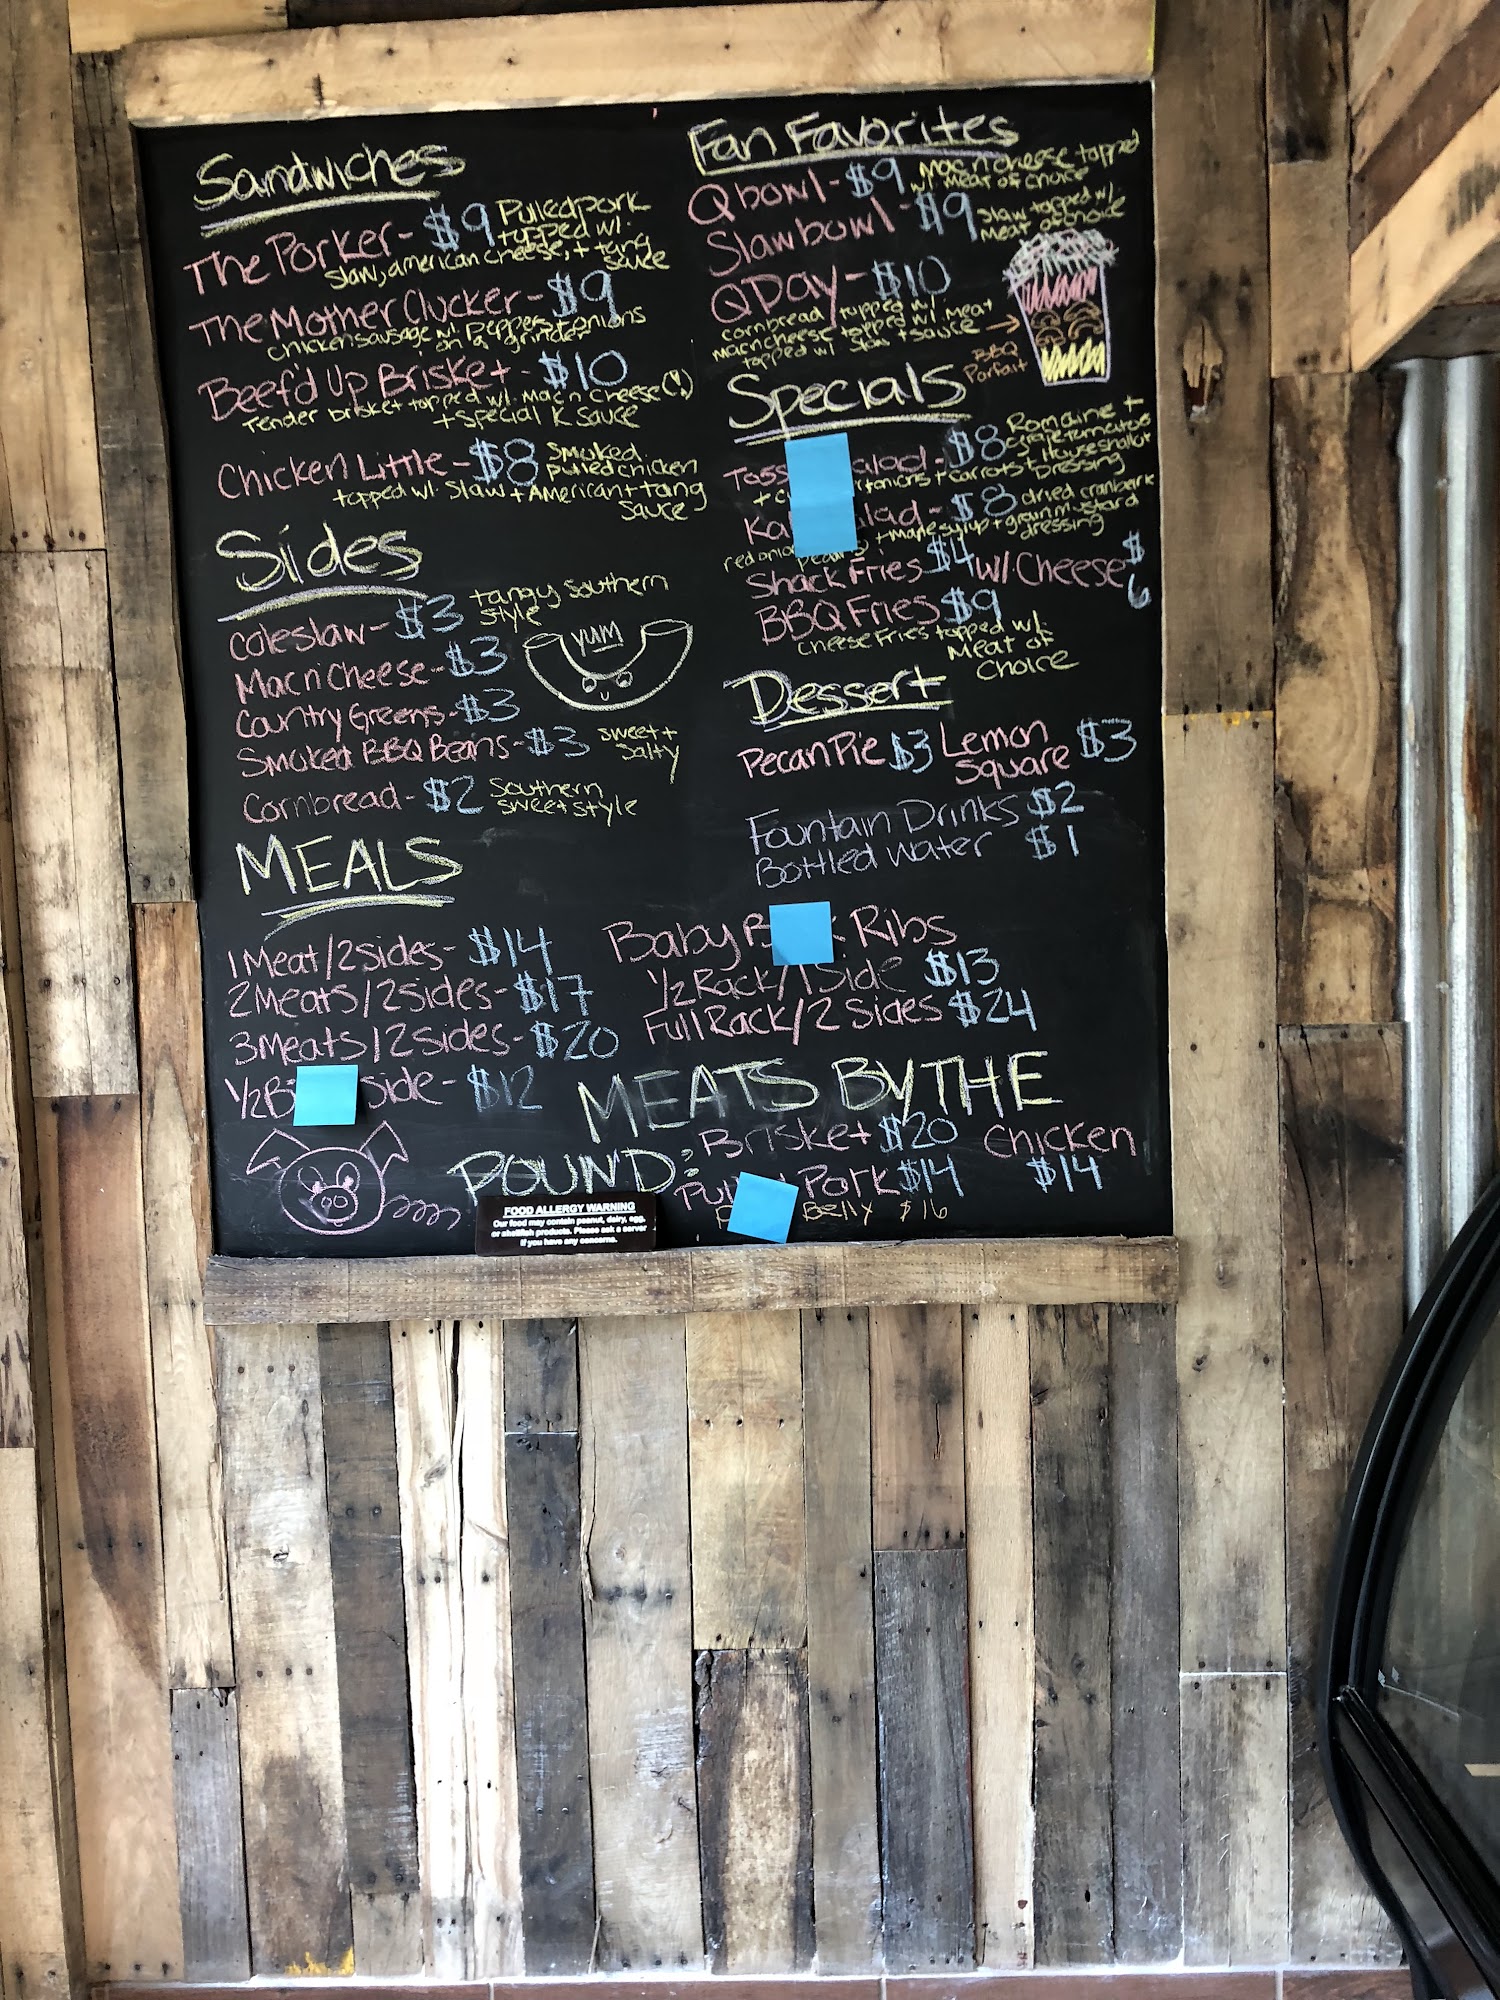 Sandwiches
The Porker - $9 Pulled pork
topped w/.
slaw, american cheese, + tang
sauce
The Mother Clucker - $9
chicken sausage w/. peppers + onions
on a grinder
Beef'd Up Brisket - $10
Tender brisket topped w/. Mac n Cheese (!)
+ special K Sauce
Chicken Little - $8 smoked
pulled chicken
topped w/. Slaw + American + tang
sauce
Sides
Coleslaw - $3 tangy southern
style
Mac n Cheese - $3
yum
Country Greens - $3
Smoked BBQ Beans - $3 sweet +
salty
Cornbread - $2 Southern
sweet style
MEALS
1 Meat / 2 sides - $14
2 Meats / 2 sides - $17
3 Meats / 2 sides - $20
1/2 B side - $12
Fan Favorites
Q bowl - $9 Mac n cheese topped
w/. Meat of choice
Slaw bowl - $9 Slaw topped w/.
Meat of choice
Q Day - $10
cornbread topped w/.
mac n cheese topped w/. meat
topped w/ slaw + sauce
BBQ
Parfait
Specials
Toss alad - $8 Romaine +
grape tomatoes
+ c + carrots + House shallot
Dressing
Ka lad - $8 dried cranberr
red onio + maple syrup + grain mustard
dressing
Shack Fries $4 w/. Cheese $6
BBQ Fries $9
cheese fries topped w/.
Meat of
Choice
Dessert
Pecan Pie $3 Lemon
Square $3
Fountain Drinks $2
Bottled Water $1
Baby B k Ribs
1/2 Rack / 1 Side $13
Full Rack / 2 Sides $24
MEATS BY THE
POUND: Brisket $20 Chicken
$14
Pul Pork $14
Belly $16
FOOD ALLERGY WARNING
Our food may contain peanut, dairy, egg,
or shellfish products. Please ask a server
if you have any concerns.